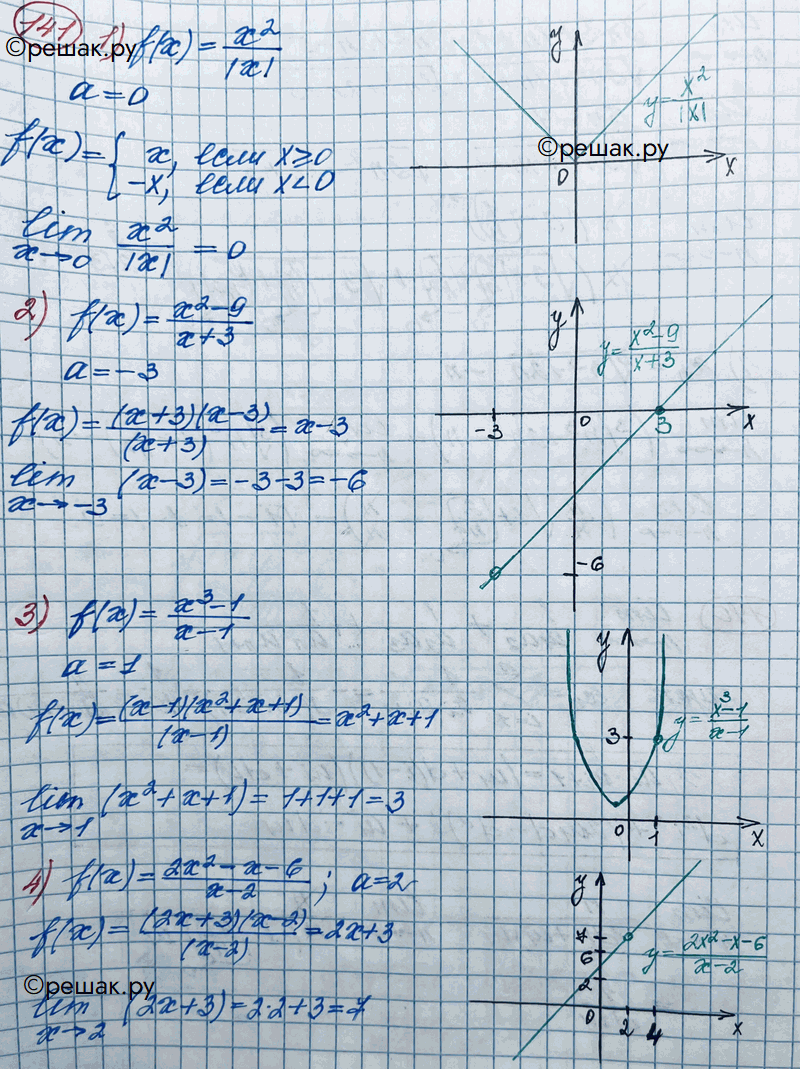 141 1) f(x) = x²/|x|
©решак.ру
a = 0
f(x) = { x, если x ≥ 0
-x, если x < 0
lim x→0 x²/|x| = 0
y
y = x²/|x|
©решак.ру
0 x
2) f(x) = x²-9/x+3
a = -3
f(x) = (x+3)(x-3)/(x+3) = x-3
lim x→-3 (x-3) = -3-3 = -6
y
y = x²-9/x+3
-3 0 3 x
-6
3) f(x) = x³-1/x-1
a = 1
f(x) = (x-1)(x²+x+1)/(x-1) = x²+x+1
lim x→1 (x²+x+1) = 1+1+1 = 3
y
y = x³-1/x-1
3
0 1 x
4) f(x) = 2x²-x-6/x-2 ; a=2
f(x) = (2x+3)(x-2)/(x-2) = 2x+3
©решак.ру
lim x→2 (2x+3) = 2·2+3 = 7
y
7
6
2
y = 2x²-x-6/x-2
0 2 4 x